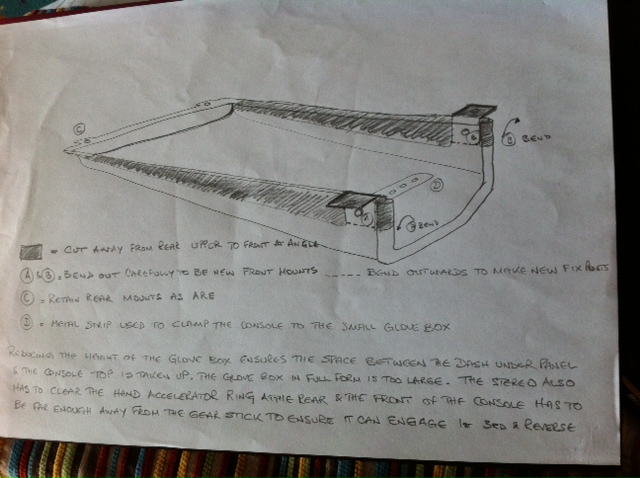 C
B BEND
B
D
A
BEND
= CUT AWAY FROM REAR UPPER TO FRONT & ANGLE
A & B = BEND OUT CAREFULLY TO BE NEW FRONT MOUNTS ------ BEND OUTWARDS TO MAKE NEW FIX
C = RETAIN REAR MOUNTS AS ARE
D = METAL STRIP USED TO CLAMP THE CONSOLE TO THE SMALL GLOVE BOX
REDUCING THE HEIGHT OF THE GLOVE BOX ENSURES THE SPACE BETWEEN THE DASH UNDER PANEL
& THE CONSOLE TOP IS TAKEN UP. THE GLOVE BOX IN FULL FORM IS TOO LARGE. THE STEREO ALSO
HAS TO CLEAR THE HAND ACCELERATOR RING AT THE REAR & THE FRONT OF THE CONSOLE HAS TO
BE FAR ENOUGH AWAY FROM THE GEAR STICK TO ENSURE IT CAN ENGAGE 1st 3RD & REVERSE